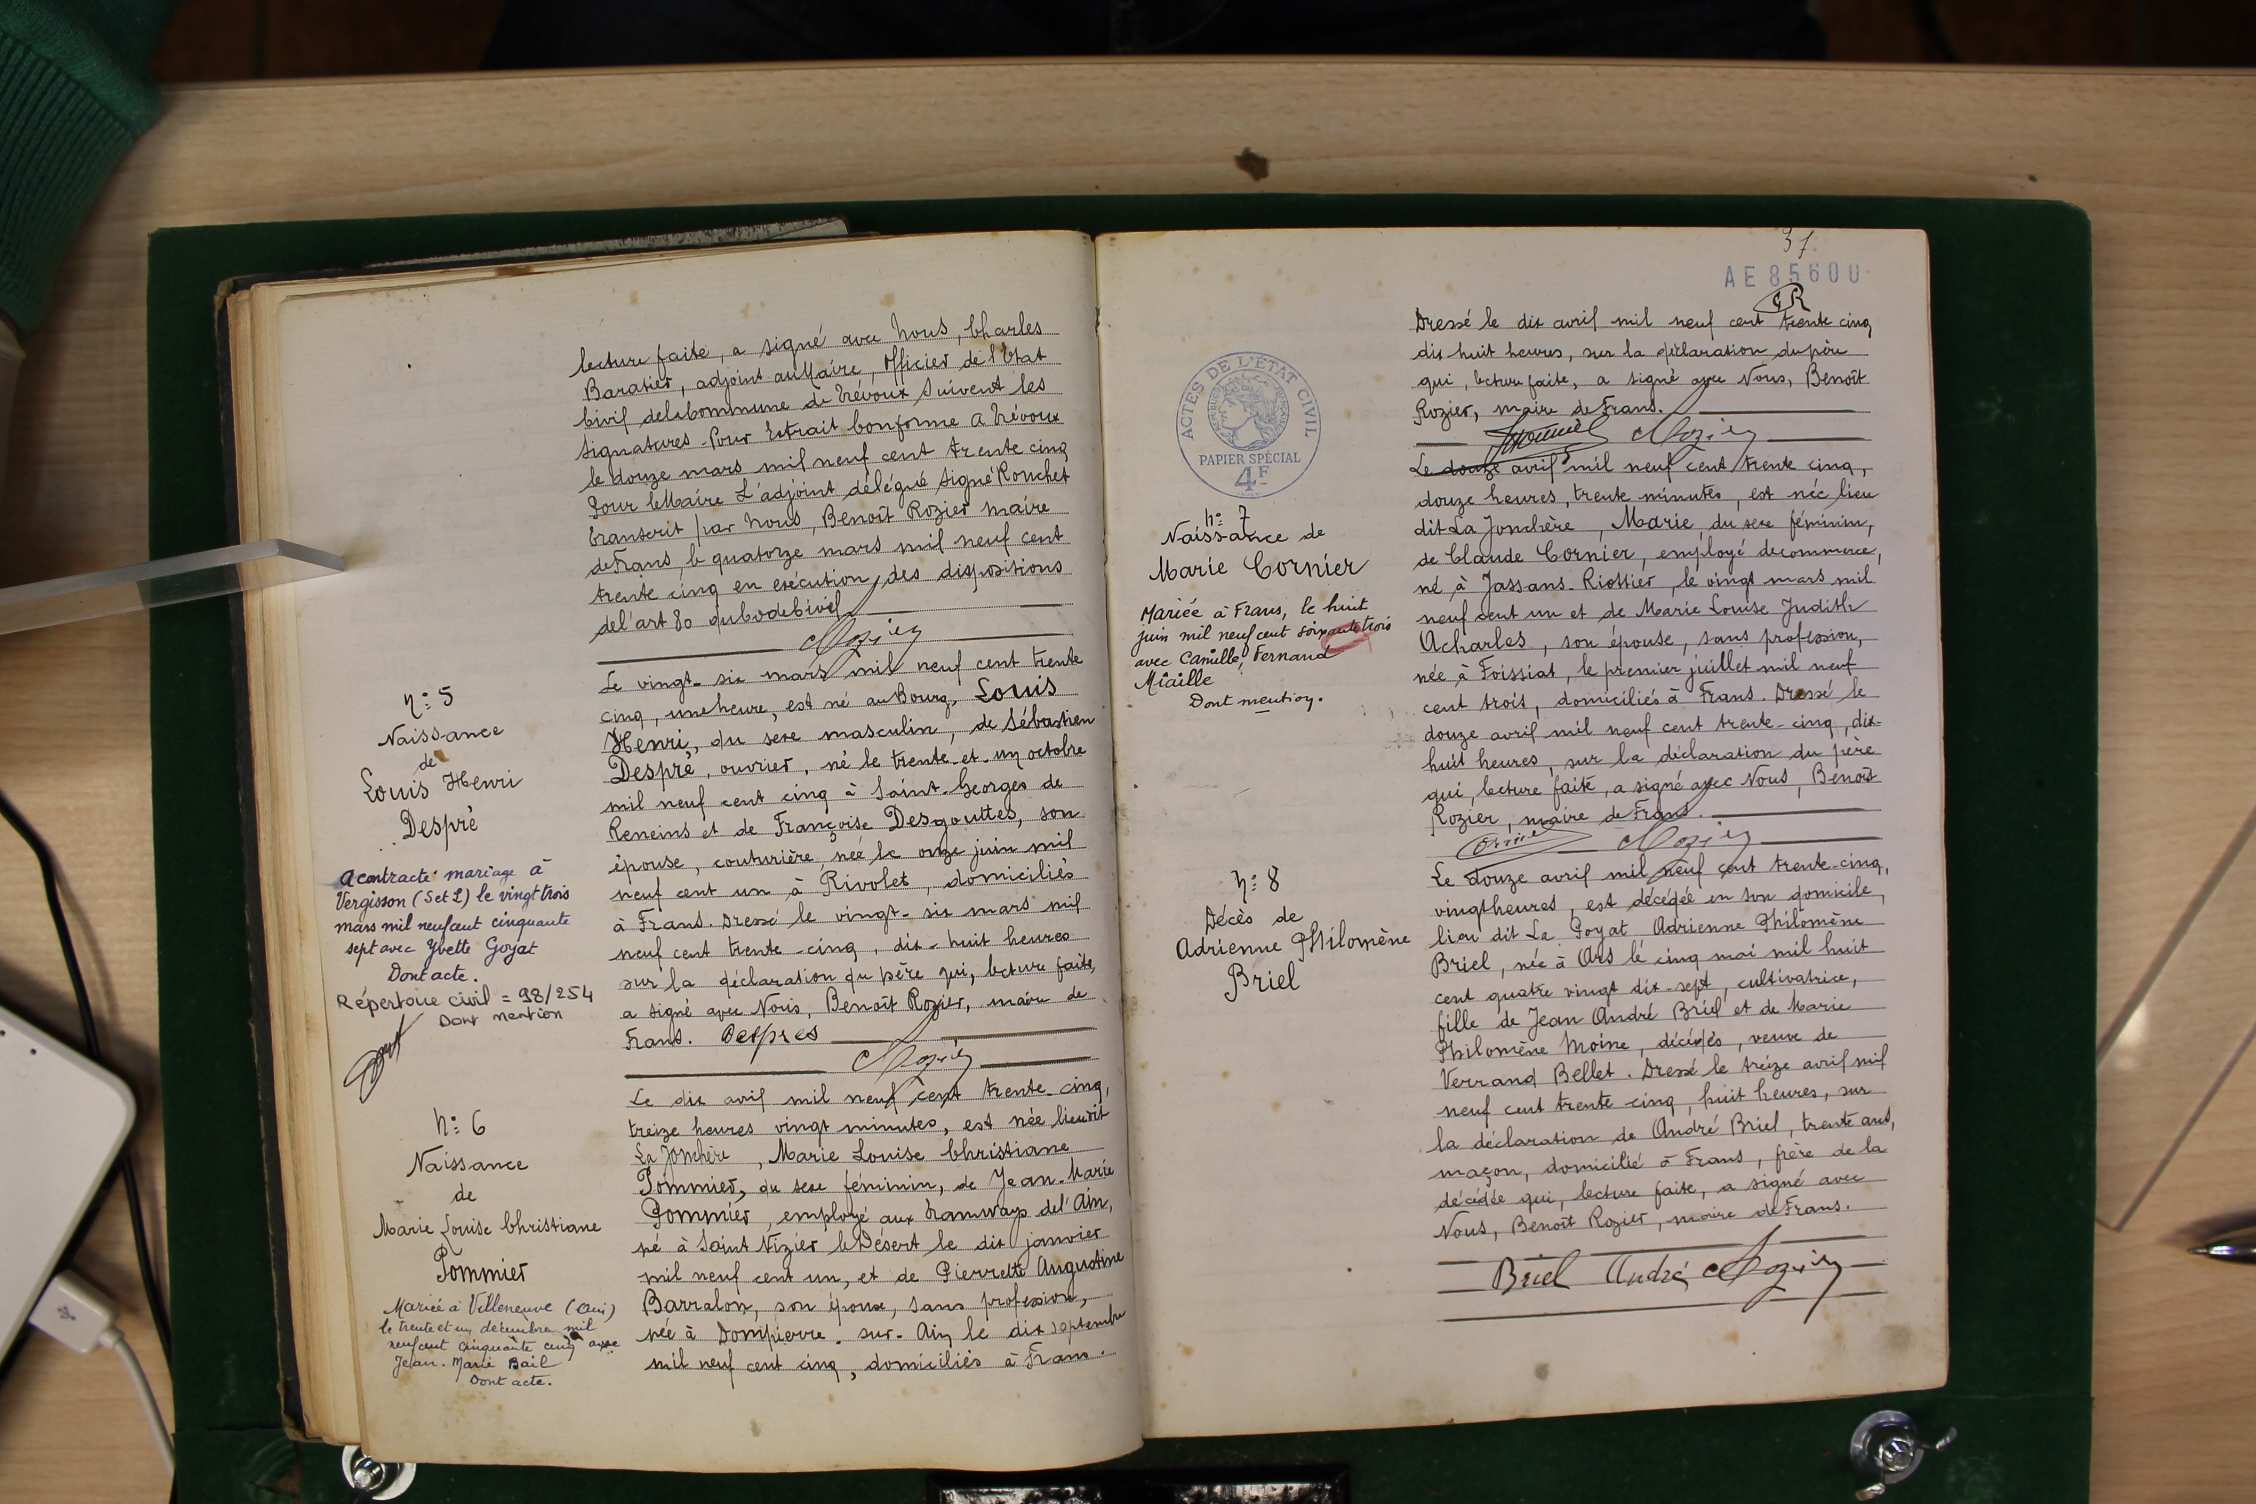 lecture faite, a signé avec Nous, Charles
Baratier, adjoint au Maire, Officier de l'Etat
Civil de la Commune de Trévoux Suivent les
signatures. Pour Extrait Conforme A Trévoux
le douze mars mil neuf cent trente cinq
Pour le Maire L'adjoint délégué Signé Ronchet
Transcrit par Nous, Benoît Rozier maire
de Frans, le quatorze mars mil neuf cent
trente cinq en exécution des dispositions
de l'art 80 du Code Civil
Rozier
N° 5
Naissance
de
Louis Henri
Despré
A contracté mariage à
Vergisson (S et L) le vingt trois
mars mil neuf cent cinquante
sept avec Yvette Goyat
Dont acte.
Répertoire civil = 98/254
Dont mention
Le vingt-six mars mil neuf cent trente
cinq, une heure, est né au Bourg, Louis
Henri, du sexe masculin, de Sébastien
Despré, ouvrier, né le trente-et-un octobre
mil neuf cent cinq à Saint-Georges de
Reneins et de Françoise Desgouttes, son
épouse, couturière, née le onze juin mil
neuf cent un à Rivolet, domiciliés
à Frans. Dressé le vingt-six mars mil
neuf cent trente-cinq, dix-huit heures
sur la déclaration du père qui, lecture faite,
a signé avec Nous, Benoît Rozier, maire de
Frans. Despres
Rozier
N° 6
Naissance
de
Marie Louise Christiane
Pommier
Mariée à Villeneuve (Ain)
le trente et un décembre mil
neuf cent cinquante cinq avec
Jean-Marie Bail
Dont acte.
Le dix avril mil neuf cent trente-cinq,
treize heures vingt minutes, est née lieu dit
La Jonchère, Marie Louise Christiane
Pommier, du sexe féminin, de Jean-Marie
Pommier, employé aux tramways de l'Ain,
né à Saint Nizier le Désert le dix janvier
mil neuf cent un, et de Pierrette Augustine
Barralon, son épouse, sans profession,
née à Dompierre-sur-Ain le dix septembre
mil neuf cent cinq, domiciliés à Frans.
37
AE 85600
GR
Dressé le dix avril mil neuf cent trente cinq
dix huit heures, sur la déclaration du père
qui, lecture faite, a signé avec Nous, Benoît
Rozier, maire de Frans.
Pommier Rozier
ACTES DE L'ÉTAT CIVIL
RÉPUBLIQUE FRANÇAISE
PAPIER SPÉCIAL
4F
N° 7
Naissance de
Marie Cornier
Mariée à Frans, le huit
juin mil neuf cent soixante trois
avec Camille, Fernand
Miaille
Dont mention.
Le douze avril mil neuf cent trente cinq,
douze heures, trente minutes, est née lieu
dit La Jonchère, Marie, du sexe féminin,
de Claude Cornier, employé de commerce,
né à Jassans-Riottier, le vingt mars mil
neuf cent un et de Marie Louise Judith
Acharles, son épouse, sans profession,
née à Foissiat, le premier juillet mil neuf
cent trois, domiciliés à Frans. Dressé le
douze avril mil neuf cent trente-cinq, dix-
huit heures, sur la déclaration du père
qui, lecture faite, a signé avec Nous, Benoît
Rozier, maire de Frans.
Cornier Rozier
N° 8
Décès de
Adrienne Philomène
Briel
Le douze avril mil neuf cent trente-cinq,
vingt heures, est décédée en son domicile,
lieu dit La Goyat Adrienne Philomène
Briel, née à Ars le cinq mai mil huit
cent quatre vingt dix-sept, cultivatrice,
fille de Jean André Briel et de Marie
Philomène Moine, décédés, veuve de
Verrand Bellet. Dressé le treize avril mil
neuf cent trente cinq, huit heures, sur
la déclaration de André Briel, trente ans,
maçon, domicilié à Frans, frère de la
décédée qui, lecture faite, a signé avec
Nous, Benoît Rozier, maire de Frans.
Briel André Rozier